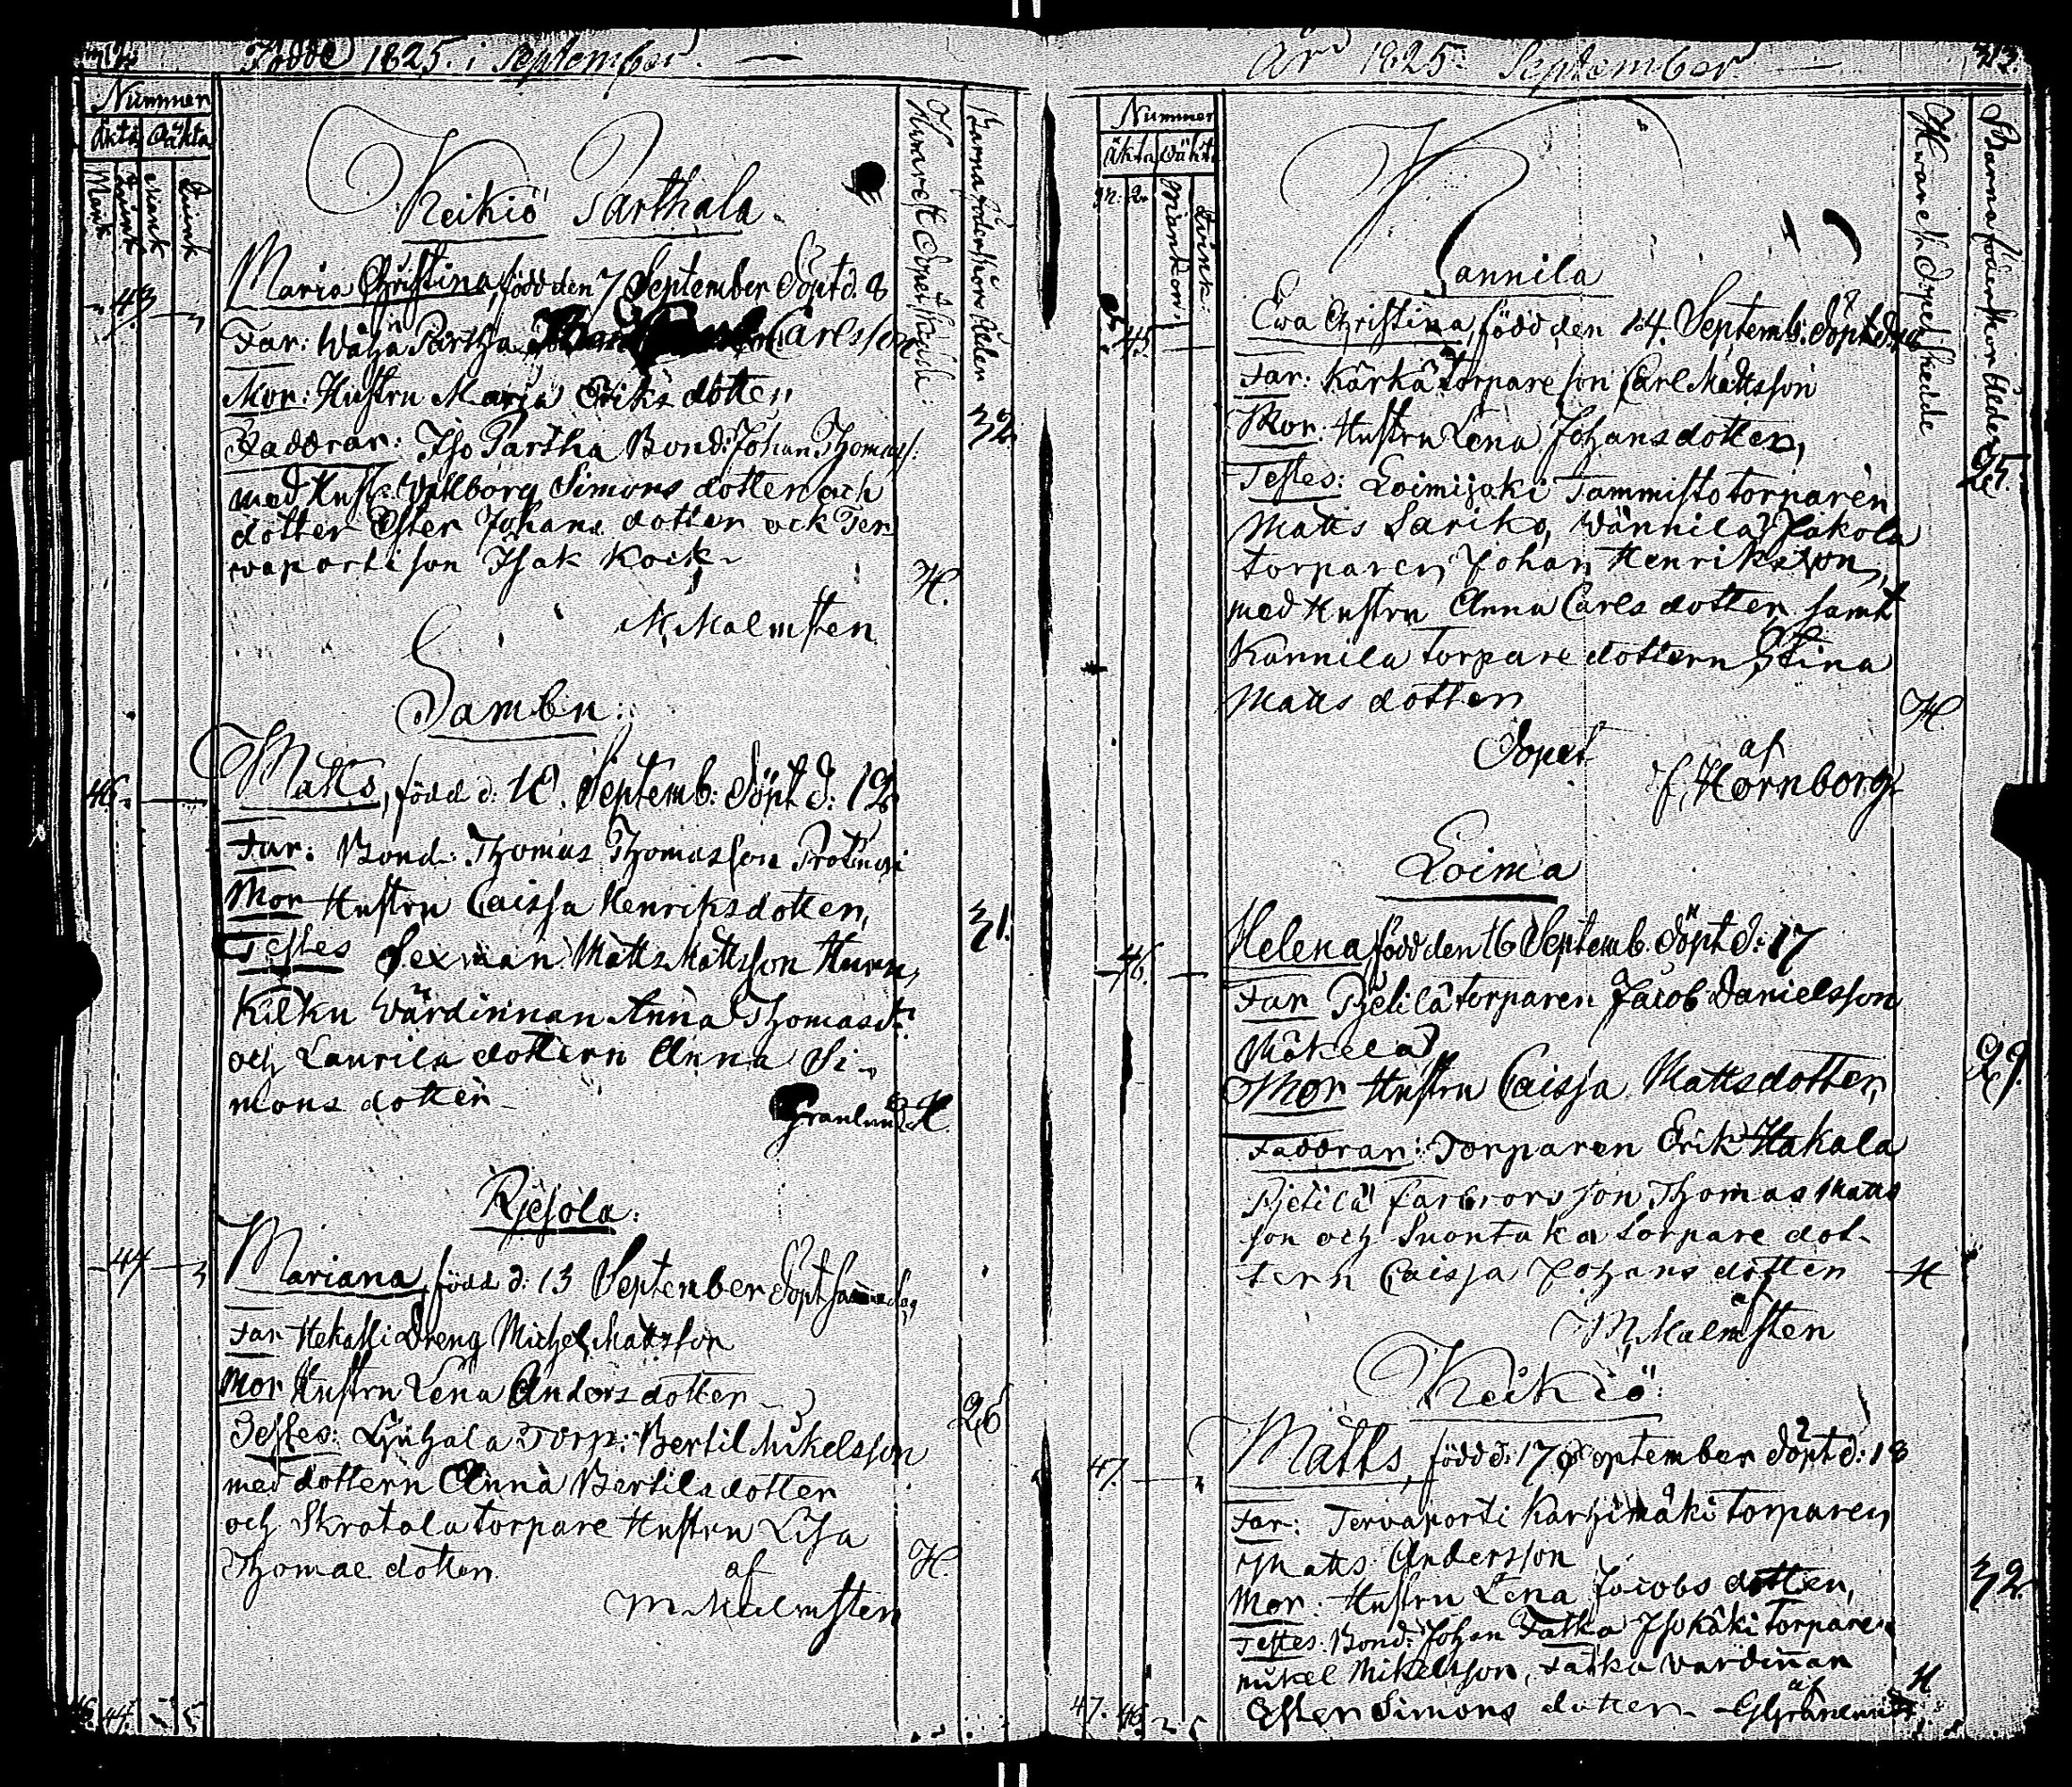 Födde 1825. i September.
Nummer
äkta oäkta
Mank
Quink
Mank
Quink
Hwarest Dopet skedde.
Barnaföderskors Ålder
Keikiö Parthala.
43.
Maria Christina, född den 7 September döpt d. 8
Far: Wähä Partha Carlsson
Mor: Hustru Maria Eriksdotter
Faddrar: Iso Partha Bond: Johan Thomass:
32
med Hust: Wallborg Simons dotter och
dotter Ester Johans dotter och Ter
waporti son Isak Koik
H.
M. Malmsten
Sambu:
46.
Matts, född d: 10. Septemb: döpt d: 12
Far: Bond: Thomas Thomasson
Mor Hustru Caisa Henriksdotter,
31.
Testes Sexman Matts Mattsson
Kilku Wärdinnan Anna Thomasd:
och Laurila dottern Anna Si-
mons dotter
Granlund H.
Rjesola:
44
Mariana, född d. 13 September döpt samma dag
Far Hekalli Dreng Michel Mattsson
Mor Hustru Lena Anders dotter
26
Testes: Ljuhala Torp: Bertil Mikelsson
med dottern Anna Bertilsdotter
och Skrotola torpare Hustru Lisa
Thomae dotter.
H.
af
M. Malmsten
44. 5
År 1825. September
313.
Nummer
äkta oäkta
m. q.
Mankön.
Qvink:
Hwarest Dopet skedde
Barnaföderskors Ålder
Kannila
45.
Ewa Christina, född den 14. Septemb: döpt d. 18
Far: Kärkä torpare son Carl Mattsson
Mor: Hustru Lena Johansdotter,
25.
Testes: Loimijoki Tammisto torparen
Matts Sariko, Wännilä Jakola
torparen Johan Henriksson,
med Hustru Anna Carls dotter samt
Kannila torpare dottern Stina
Matts dotter
H.
Döpet af
F. Hornborg
Loima
46.
Helena född den 16 Septemb. döpt d: 17
Far Pjetilä torparen Jacob Danielsson
Mäkelä
29.
Mor Hustru Caisa Mattsdotter,
Faddrar: Torparen Erik Hakala
Pjetilä farbrors son Thomas Matts
son och Suontaka torpare dot-
tern Caisa Johans dotter
H
af
M. Malmsten
Keikiö:
47.
Matts, född d: 17 September döpt d: 18
Far: Tervaporti Karhimäki torparen
Matts Andersson
32
Mor: Hustru Lena Jacobs dotter,
Testes: Bond: Johan Fatka Isokäki torparen
Mikel Mikelsson, Fatka värdinnan
H
Ester Simons dotter - af Granlund
47. 46. 2 5